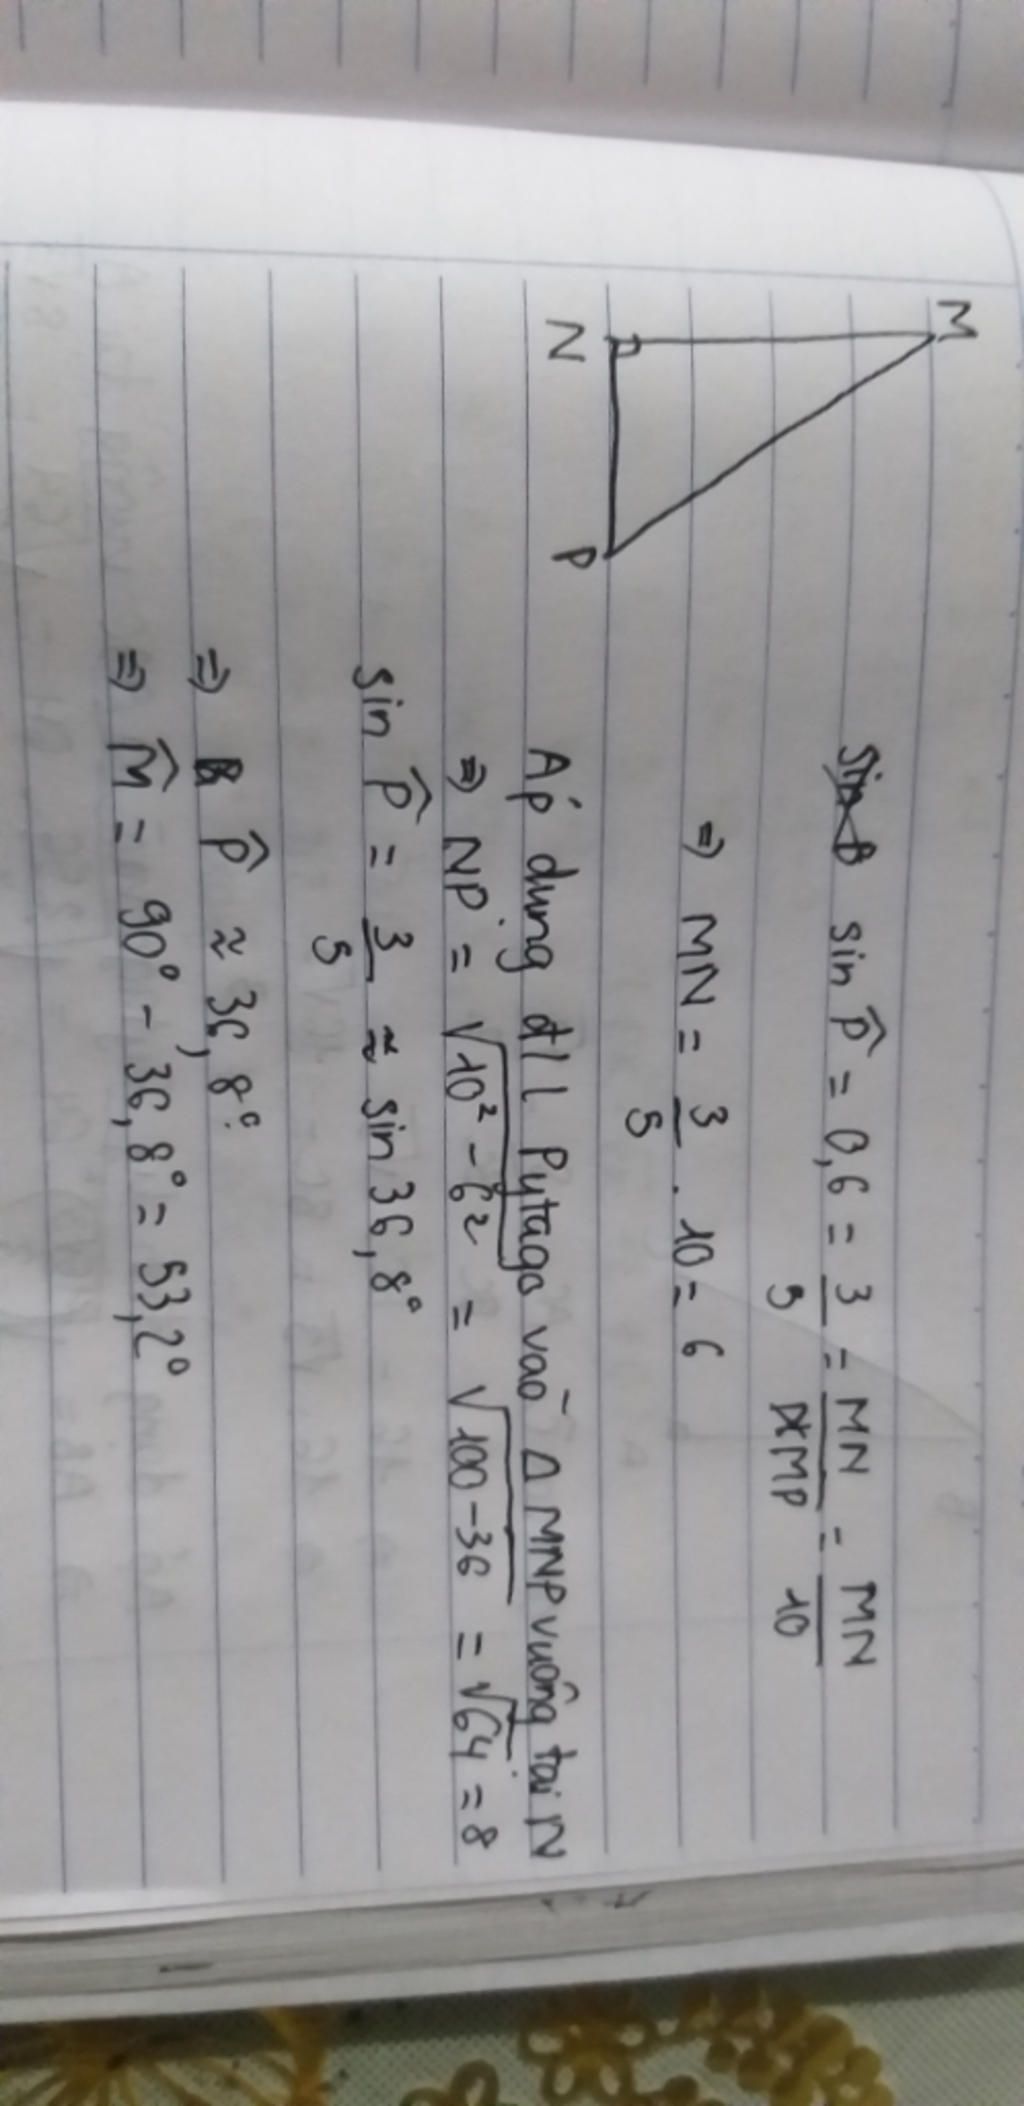 M
N
P
sin B sin P̂ = 0,6 = 3/5 = MN/MP = MN/10
⇒ MN = 3/5 . 10 = 6
Áp dụng đ/l Pytago vào Δ MNP vuông tại N
⇒ NP = √(10² - 6²) = √(100 - 36) = √64 = 8
sin P̂ = 3/5 ≈ sin 36,8°
⇒ P̂ ≈ 36,8°
⇒ M̂ = 90° - 36,8° = 53,2°